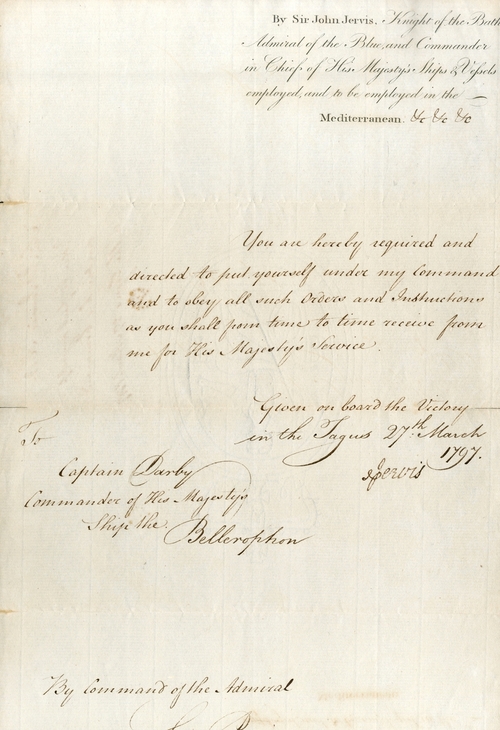 By Sir John Jervis, Knight of the Bath
Admiral of the Blue, and Commander
in Chief of His Majesty's Ships & Vessels
employed, and to be employed in the —
Mediterranean. &c &c &c
You are hereby required and
directed to put yourself under my Command
and to obey all such Orders and Instructions
as you shall from time to time receive from
me for His Majesty's Service.
Given on board the Victory
in the Tagus 27th March
1797.
JJervis
To
Captain Darby
Commander of His Majesty's
Ship the
Bellerophon
By Command of the Admiral